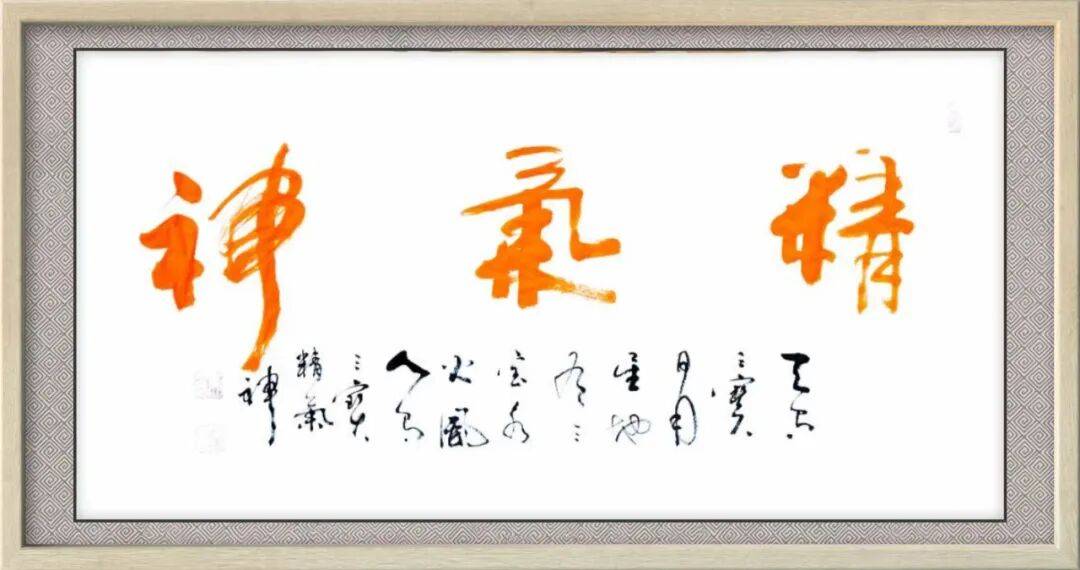 精氣神
天有
三寶
日月
星地
有三
宝水
火風
人有
三寶
精氣
神